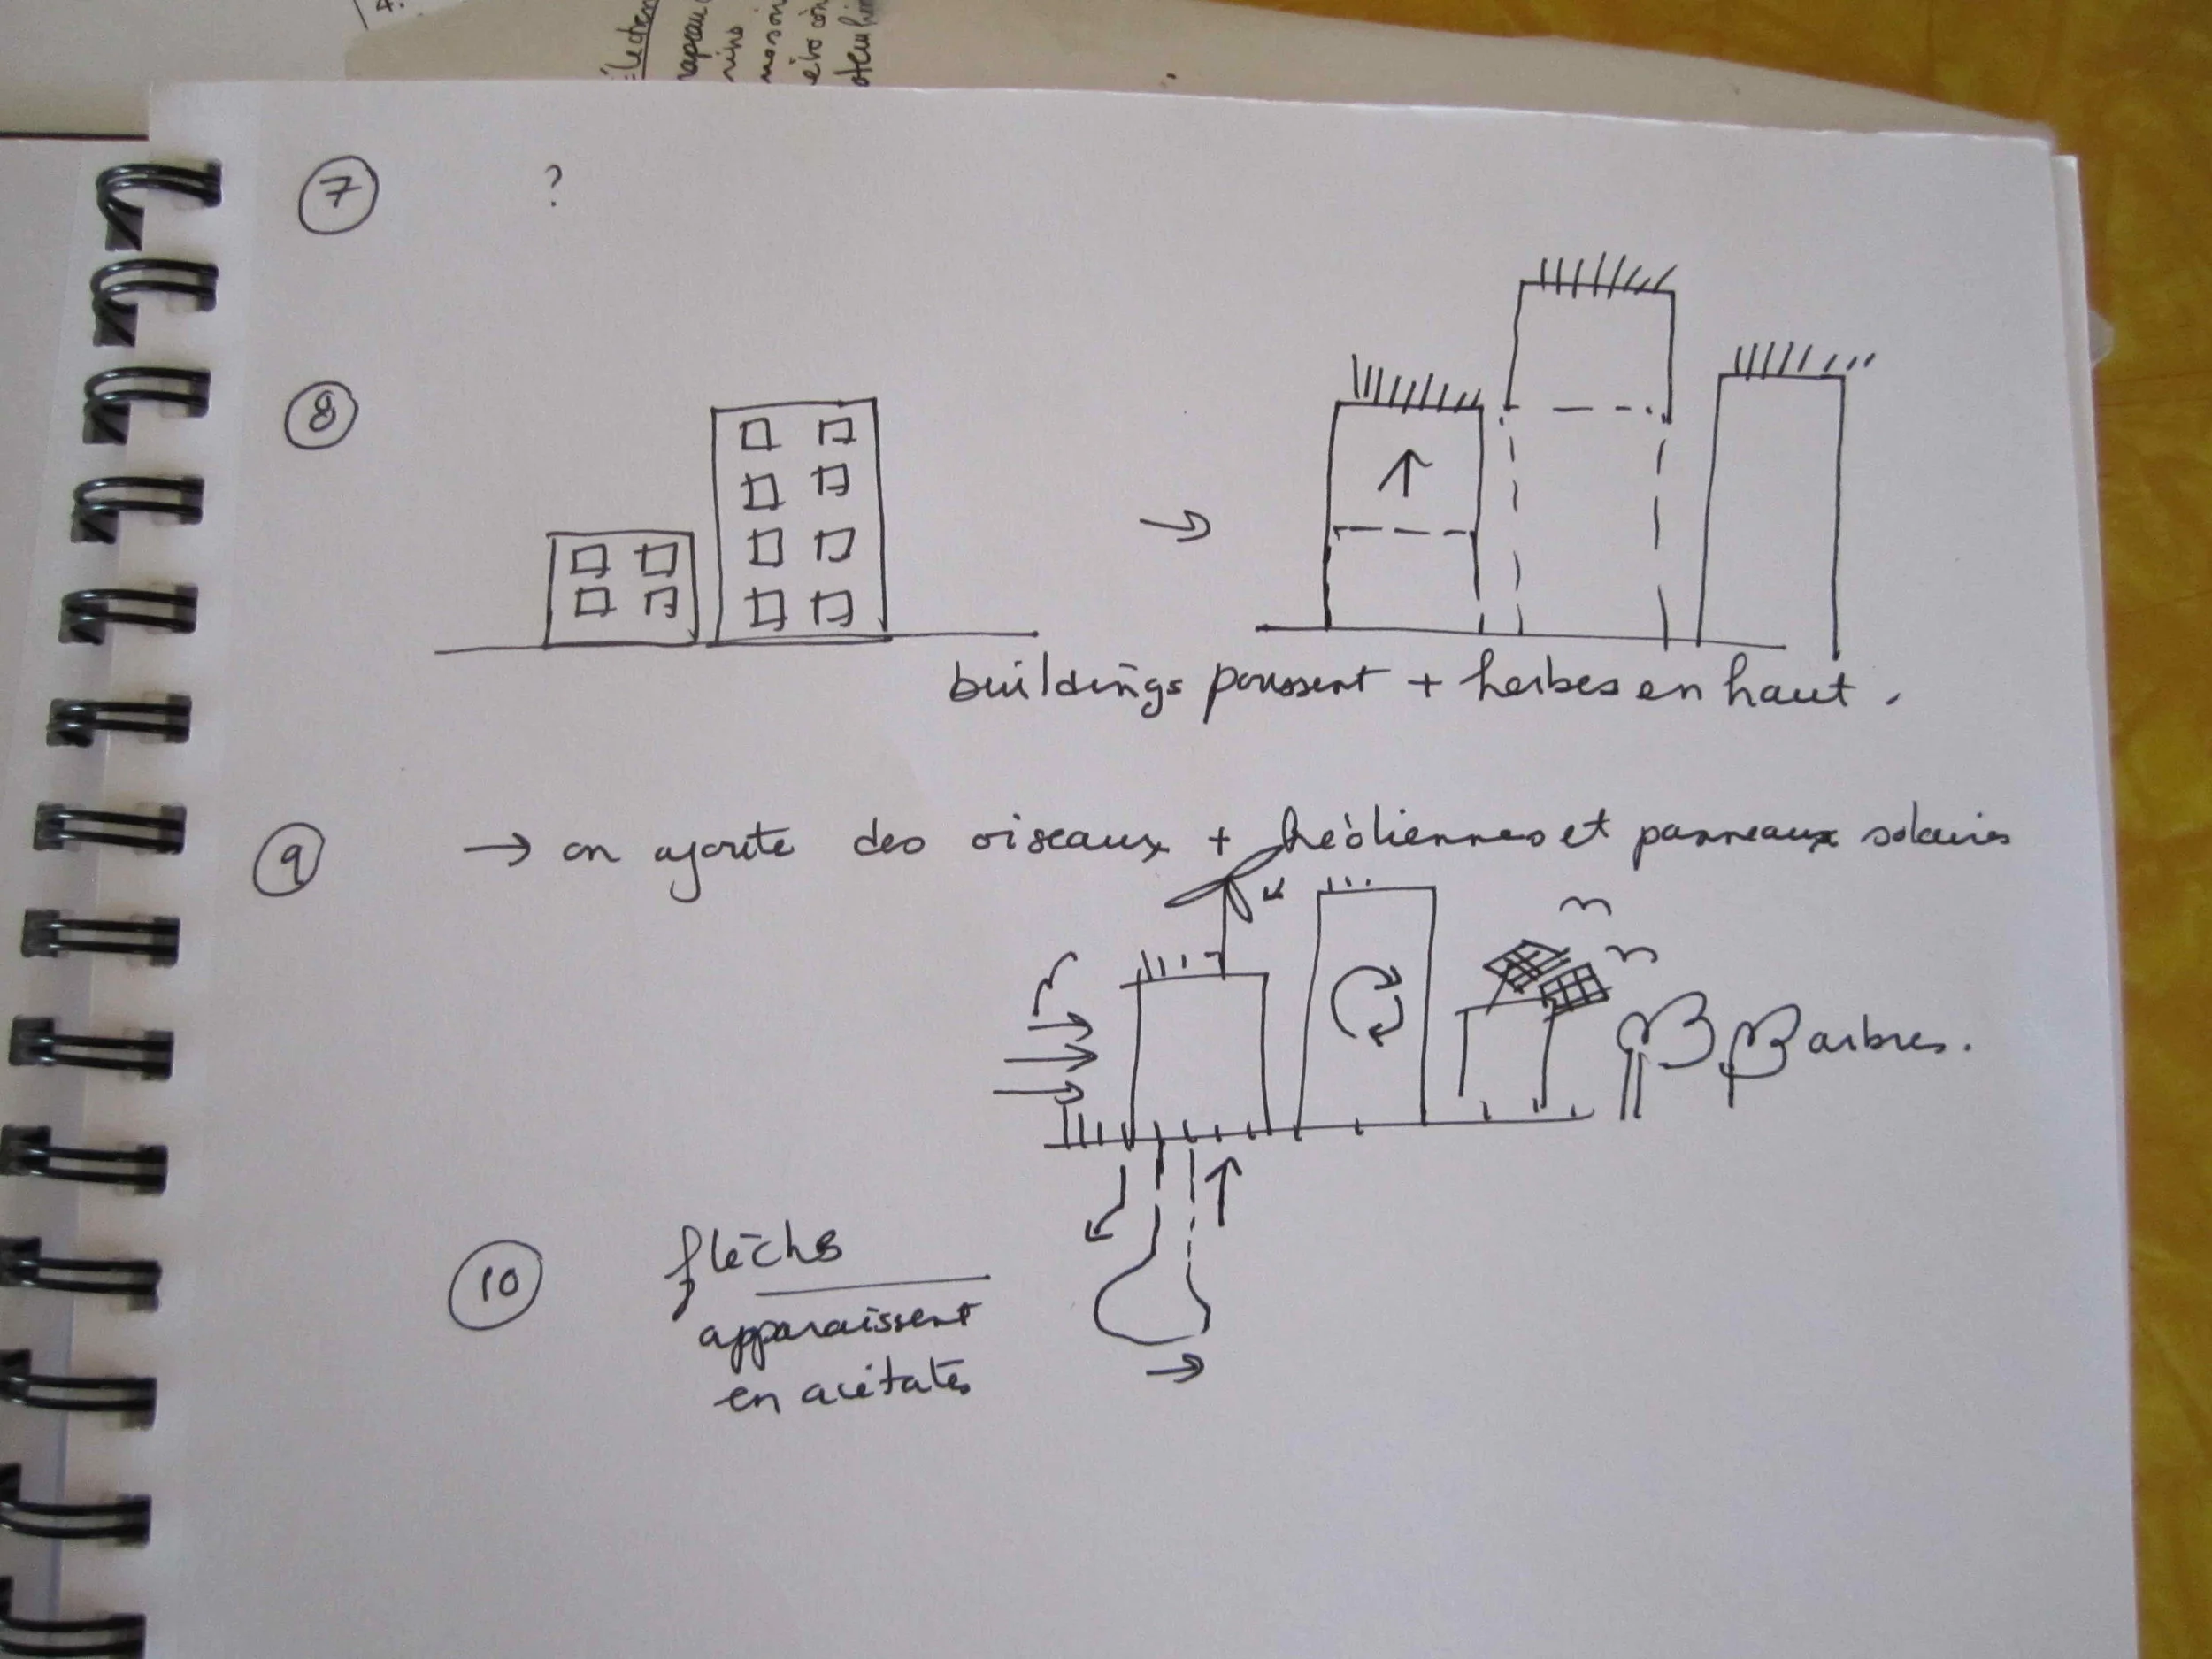 7 ?
8
buildings poussent + herbes en haut.
9 → on ajoute des oiseaux + héoliennes et panneaux solaires
arbres.
10 flèchs
apparaissent
en acétates